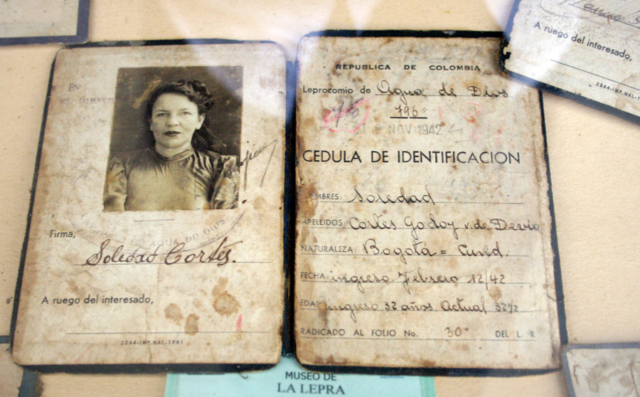 Firma,
Soledad Cortés.
A ruego del interesado,
2244-IMP. NAL.-1941
REPUBLICA DE COLOMBIA
Leprocomio de Agua de Dios
796
NOV 1942
CEDULA DE IDENTIFICACION
NOMBRES Soledad
APELLIDOS Cortés Godoy v. de
NATURALIZA Bogotá = Cund.
FECHA ingreso Febrero 12/42
EDAD ingreso 32 años Actual 32½
RADICADO AL FOLIO No. 30 DEL L.
A ruego del interesado,
2244-IMP. NAL.
MUSEO DE
LA LEPRA